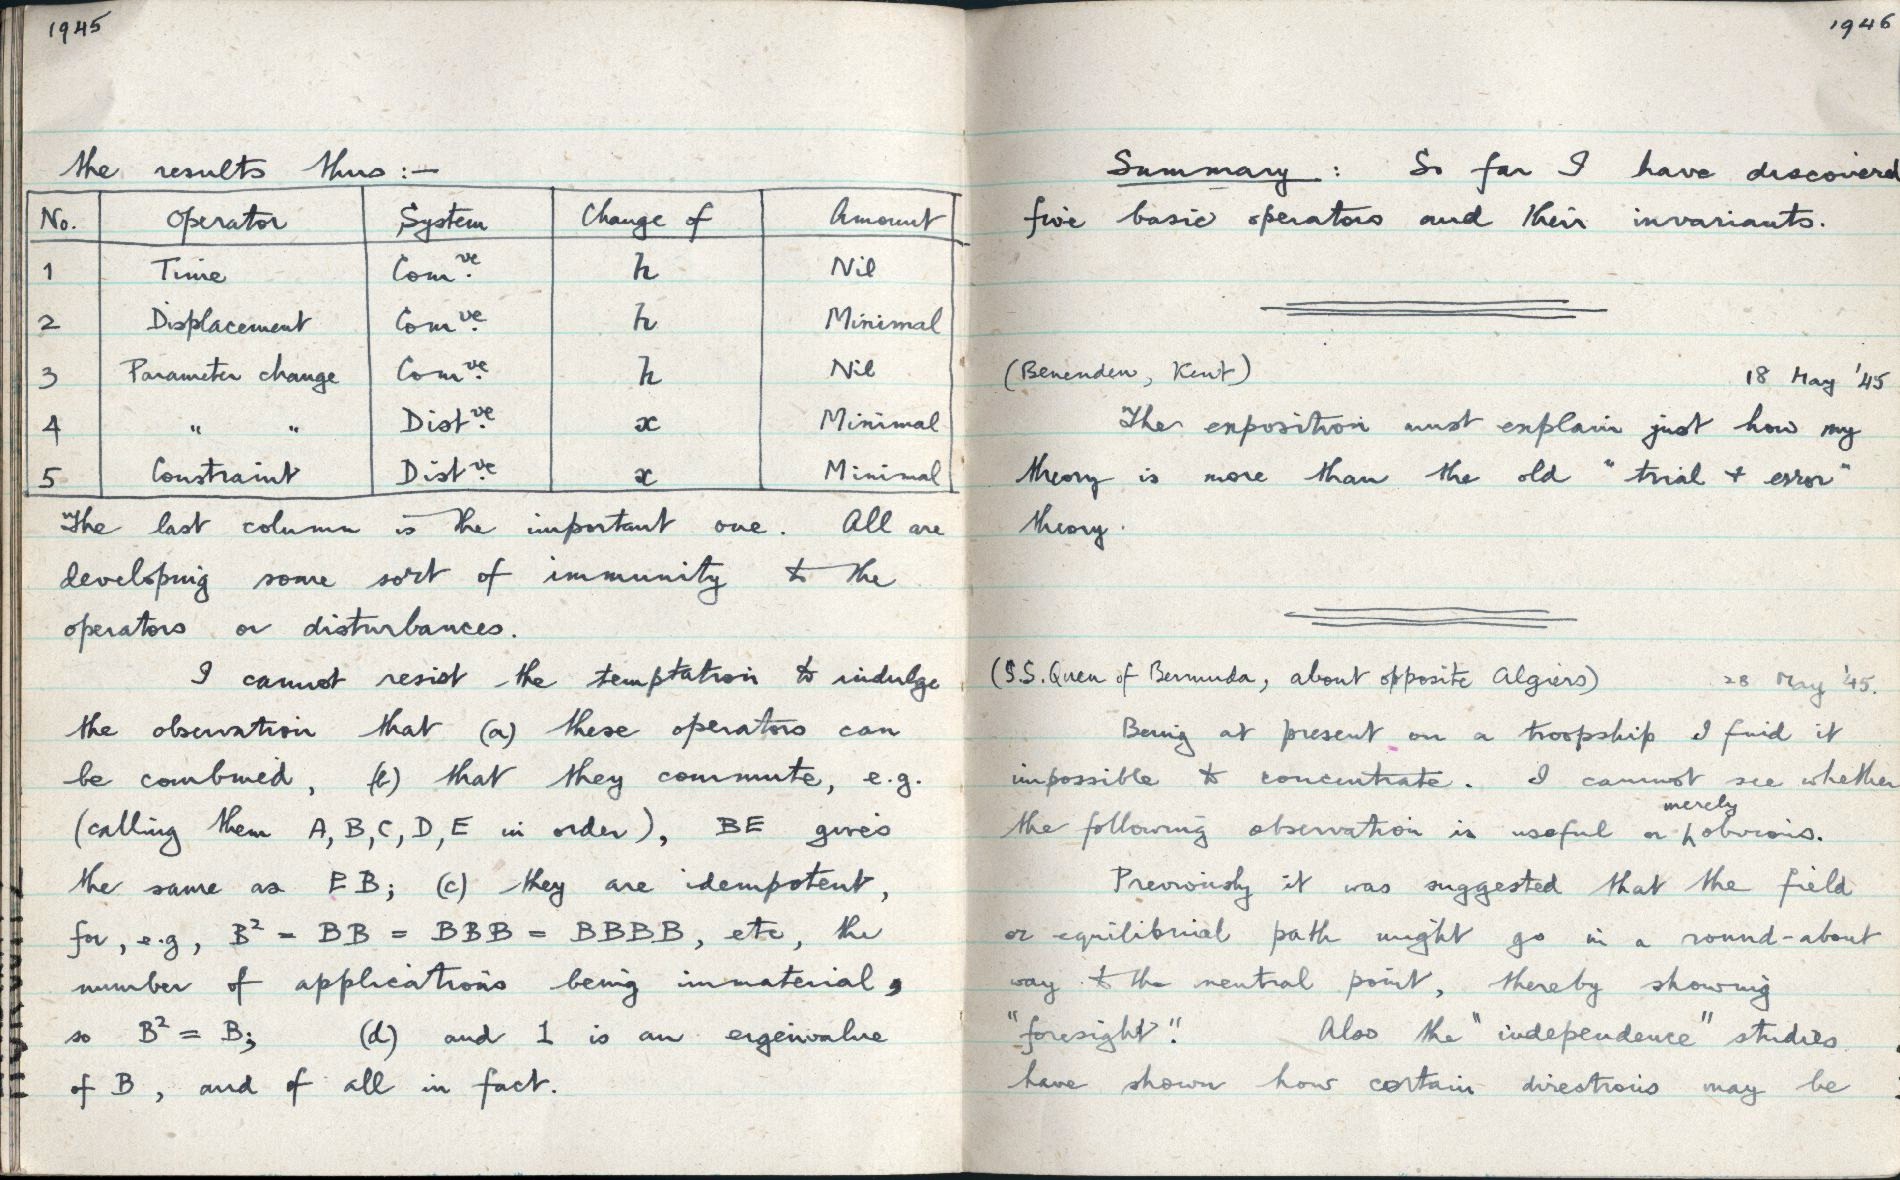 1945
the results thus :—
No. Operator System Change of Amount
1 Time Com.ve h Nil
2 Displacement Com.ve h Minimal
3 Parameter change Com.ve h Nil
4 " " Dist.ve x Minimal
5 Constraint Dist.ve x Minimal
The last column is the important one. All are
developing some sort of immunity to the
operators or disturbances.
I cannot resist the temptation to indulge
the observation that (a) these operators can
be combined, (b) that they commute, e.g.
(calling them A, B, C, D, E in order), BE gives
the same as EB; (c) they are idempotent,
for, e.g, B² = BB = BBB = BBBB, etc, the
number of applications being immaterial,
so B² = B; (d) and 1 is an eigenvalue
of B, and of all in fact.
1946
Summary : So far I have discovered
five basic operators and their invariants.
(Benenden, Kent) 18 May '45
The exposition must explain just how my
theory is more than the old "trial + error"
theory.
(S.S. Queen of Bermuda, about opposite Algiers) 28 May '45.
Being at present on a troopship I find it
impossible to concentrate. I cannot see whether
merely
the following observation is useful or obvious.
Previously it was suggested that the field
or equilibrial path might go in a round-about
way to the neutral point, thereby showing
"foresight". Also the "independence" studies
have shown how certain directions may be